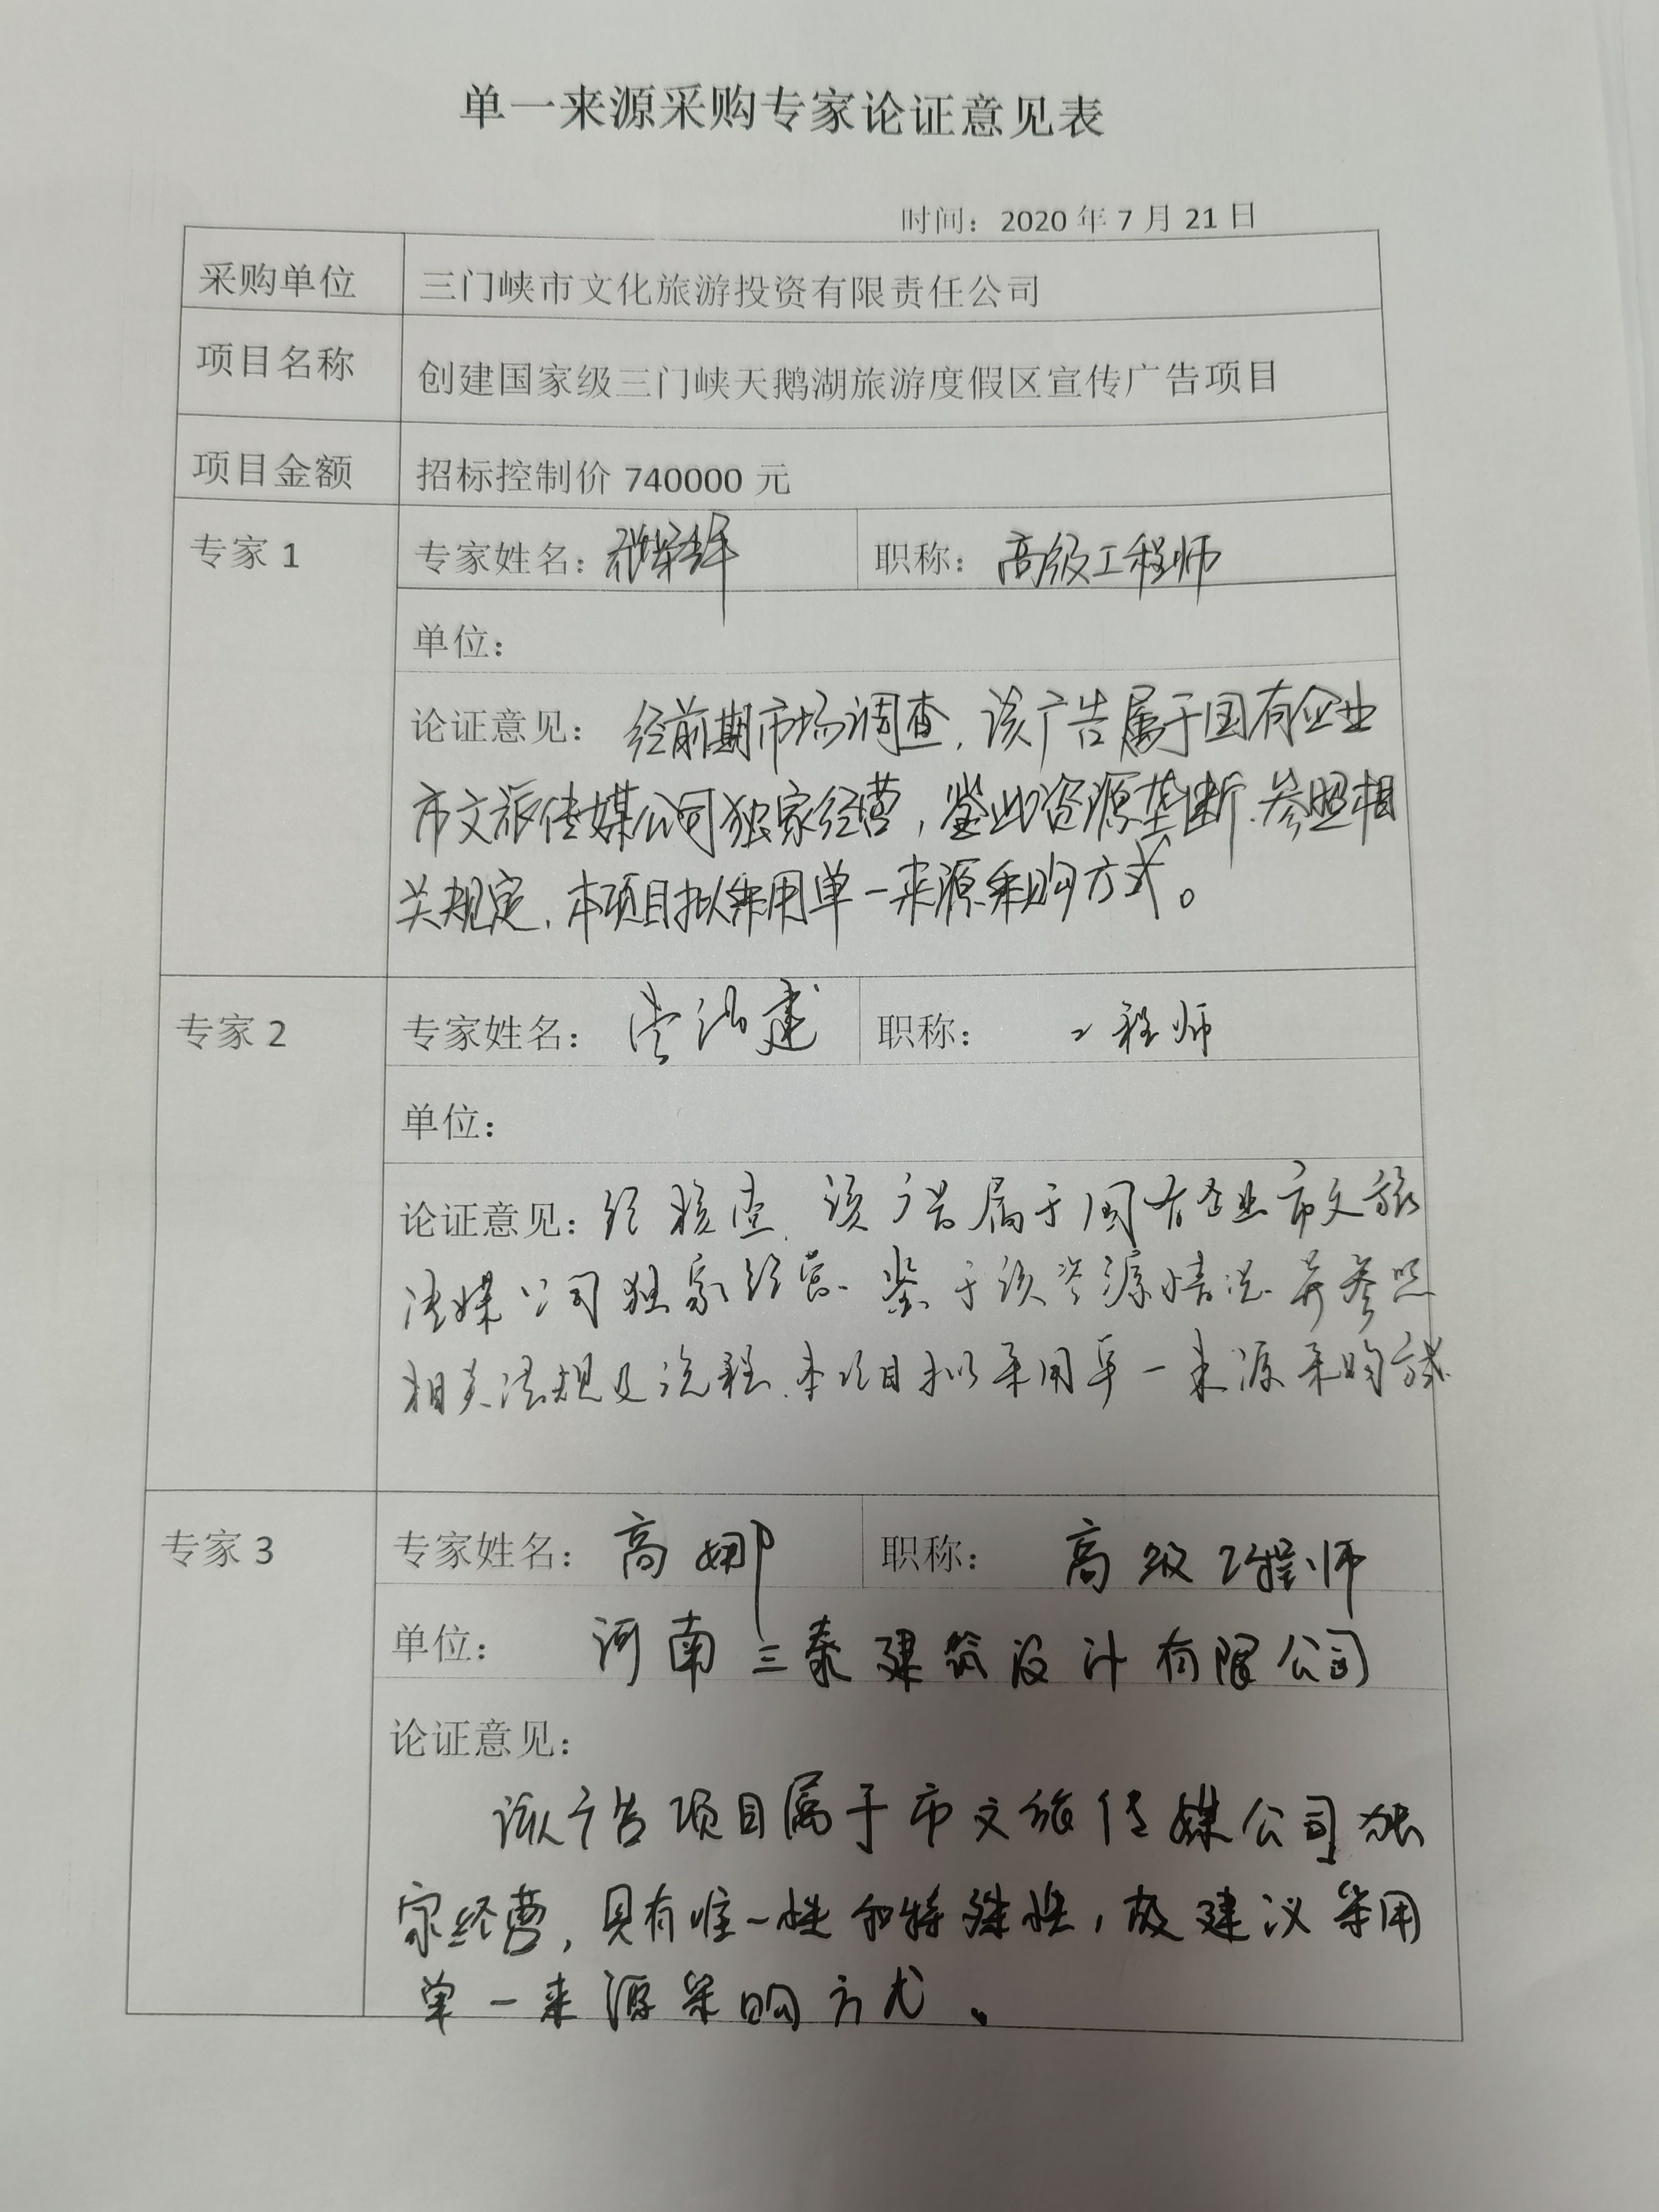 单一来源采购专家论证意见表
时间：2020 年 7 月 21 日
采购单位 三门峡市文化旅游投资有限责任公司
项目名称 创建国家级三门峡天鹅湖旅游度假区宣传广告项目
项目金额 招标控制价 740000 元
专家 1 专家姓名： 职称：高级工程师
单位：
论证意见：经前期市场调查，该广告属于国有企业
市文旅传媒公司独家经营，鉴此资源垄断，参照相
关规定，本项目拟采用单一来源采购方式。
专家 2 专家姓名： 职称：工程师
单位：
论证意见：经核查，该广告属于国有企业市文旅
传媒公司独家经营，鉴于该资源情况，并参照
相关法规及流程，本项目拟采用单一来源采购方式
专家 3 专家姓名：高娜 职称：高级工程师
单位：河南三泰建筑设计有限公司
论证意见：
该广告项目属于市文旅传媒公司独
家经营，具有唯一性和特殊性，故建议采用
单一来源采购方式。